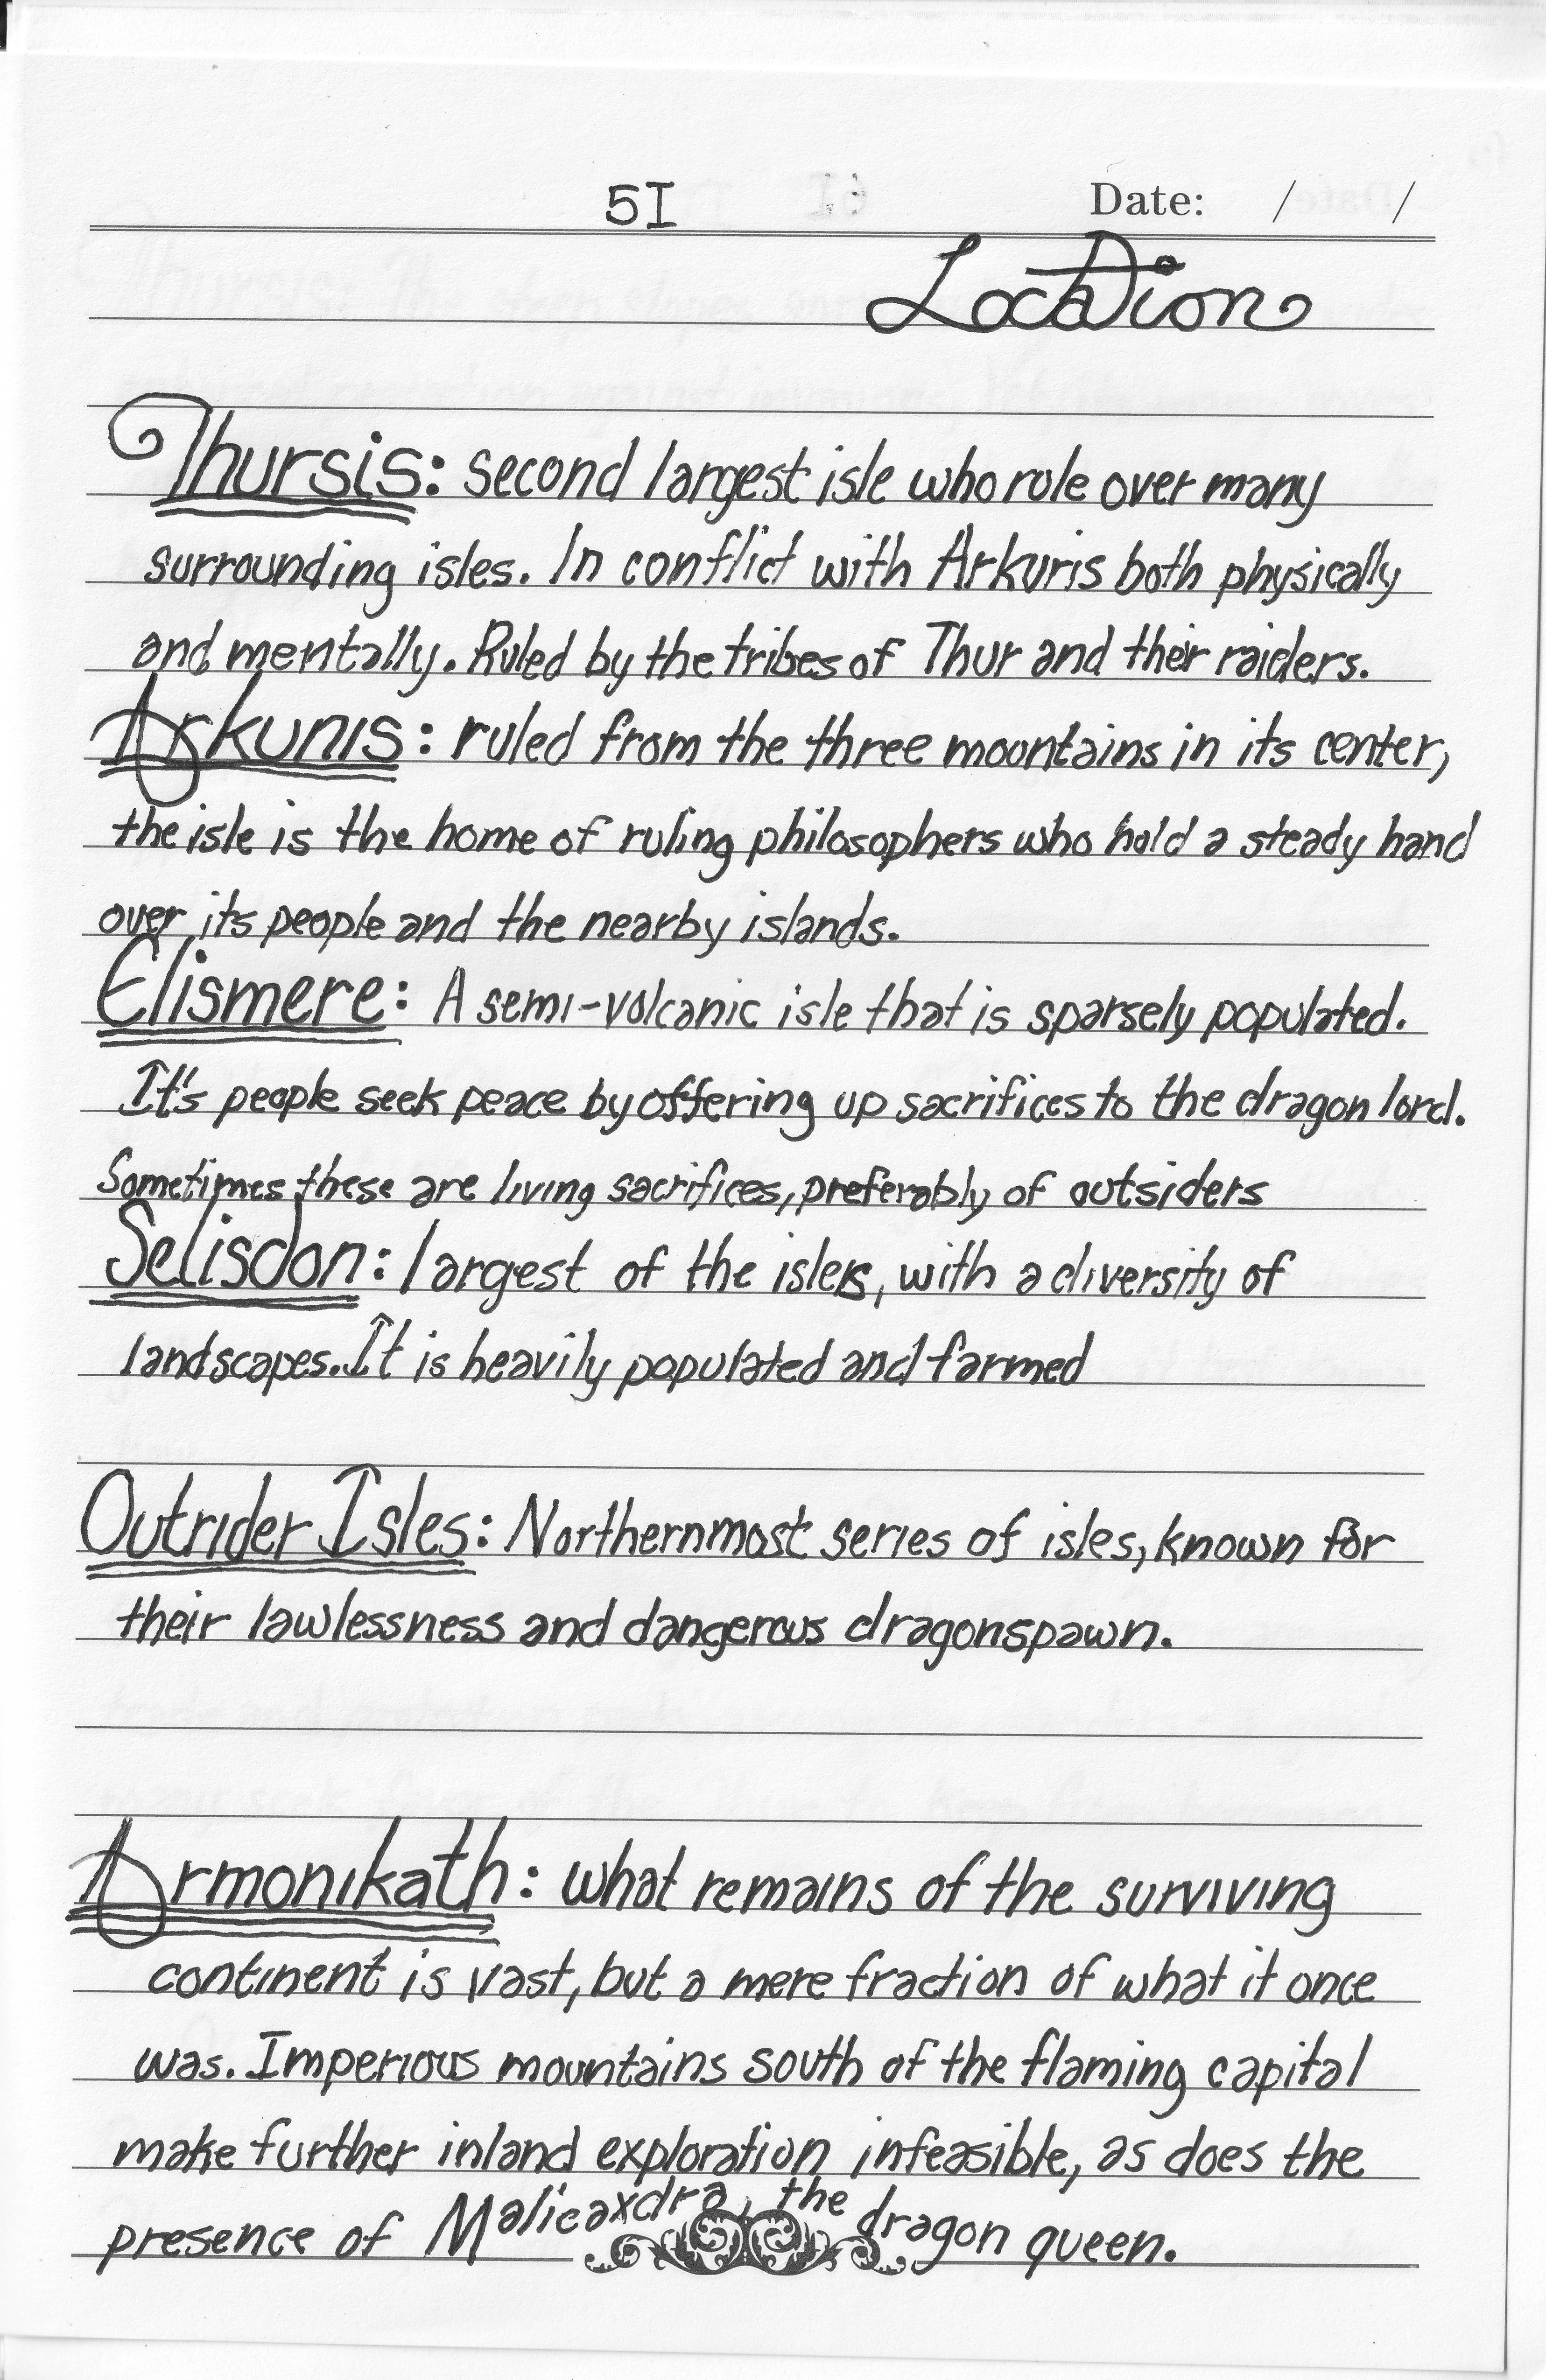 5I
Date: / /
Location
Thursis: second largest isle who rule over many
surrounding isles. In conflict with Arkuris both physically
and mentally. Ruled by the tribes of Thur and their raiders.
Arkunis: ruled from the three mountains in its center,
the isle is the home of ruling philosophers who hold a steady hand
over its people and the nearby islands.
Elismere: A semi-volcanic isle that is sparsely populated.
It's people seek peace by offering up sacrifices to the dragon lord.
Sometimes these are living sacrifices, preferably of outsiders
Selisdon: largest of the isles, with a diversity of
landscapes. It is heavily populated and farmed
Outrider Isles: Northernmost series of isles, known for
their lawlessness and dangerous dragonspawn.
Armonikath: what remains of the surviving
continent is vast, but a mere fraction of what it once
was. Imperious mountains south of the flaming capital
make further inland exploration infeasible, as does the
presence of Malicaxdra, the dragon queen.